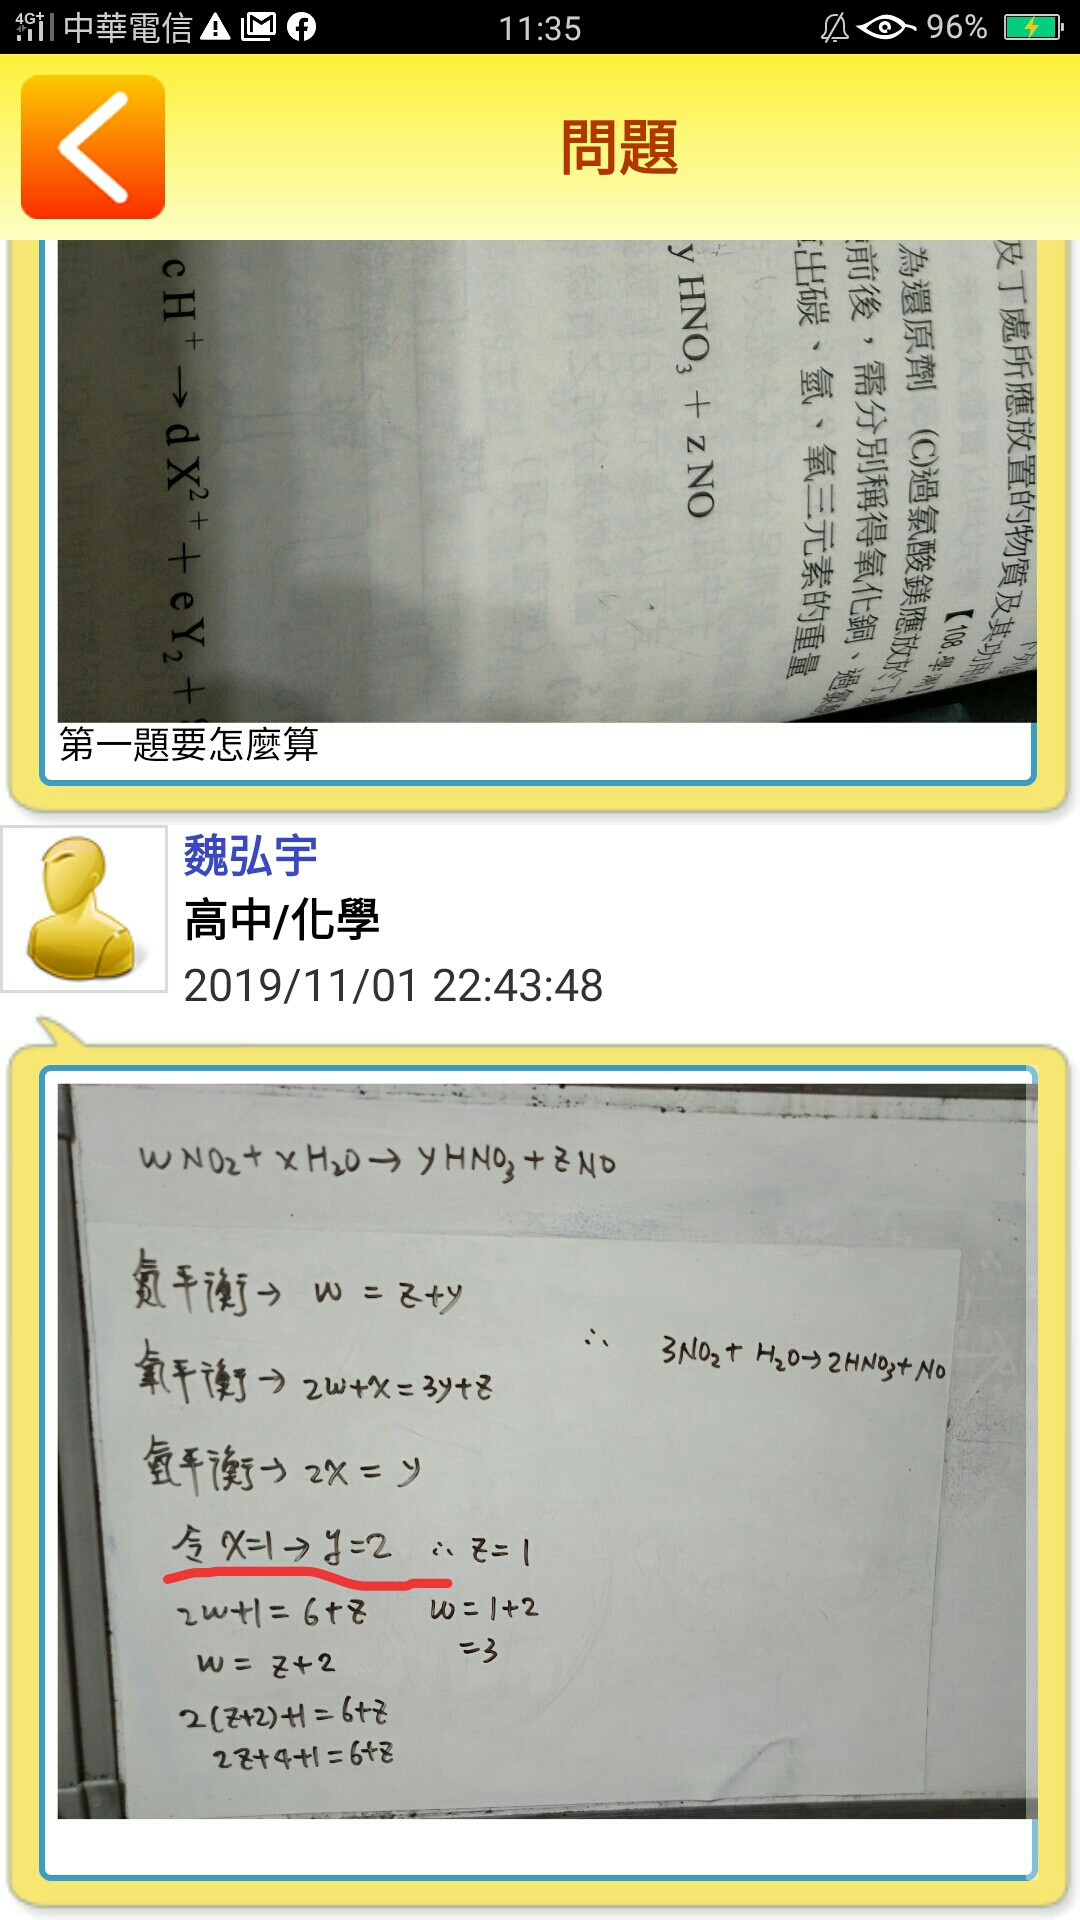 4G+ 中華電信 11:35 96%
問題
及丁處所應放置的物質及其功用
【108.學測】
為還原劑 (C)過氯酸鎂應放於丁
前後，需分別稱得氧化銅、過氯
出碳、氫、氧三元素的重量
y HNO₃ + z NO
c H⁺ → d X²⁺ + e Y₂ +
第一題要怎麼算
魏弘宇
高中/化學
2019/11/01 22:43:48
WNO₂+ xH₂O→ yHNO₃+zNO
氮平衡→ w = z+y
∴ 3NO₂+ H₂O→2HNO₃+NO
氧平衡→ 2w+x=3y+z
氫平衡→ 2x = y
令 x=1→y=2 ∴ z=1
2w+1= 6+z w=1+2
=3
w= z+2
2(z+2)+1=6+z
2z+4+1=6+z